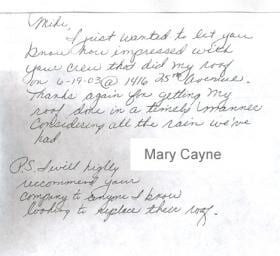 Mike,
I just wanted to let you
know how impressed with
your crew that did my roof
on 6-19-03 @ 1416 25th Avenue.
Thanks again for getting my
roof done in a timely manner
Considering all the rain we've
had.
Mary Cayne
P.S. I will highly
recommend your
company to anyone I know
looking to replace their roof.